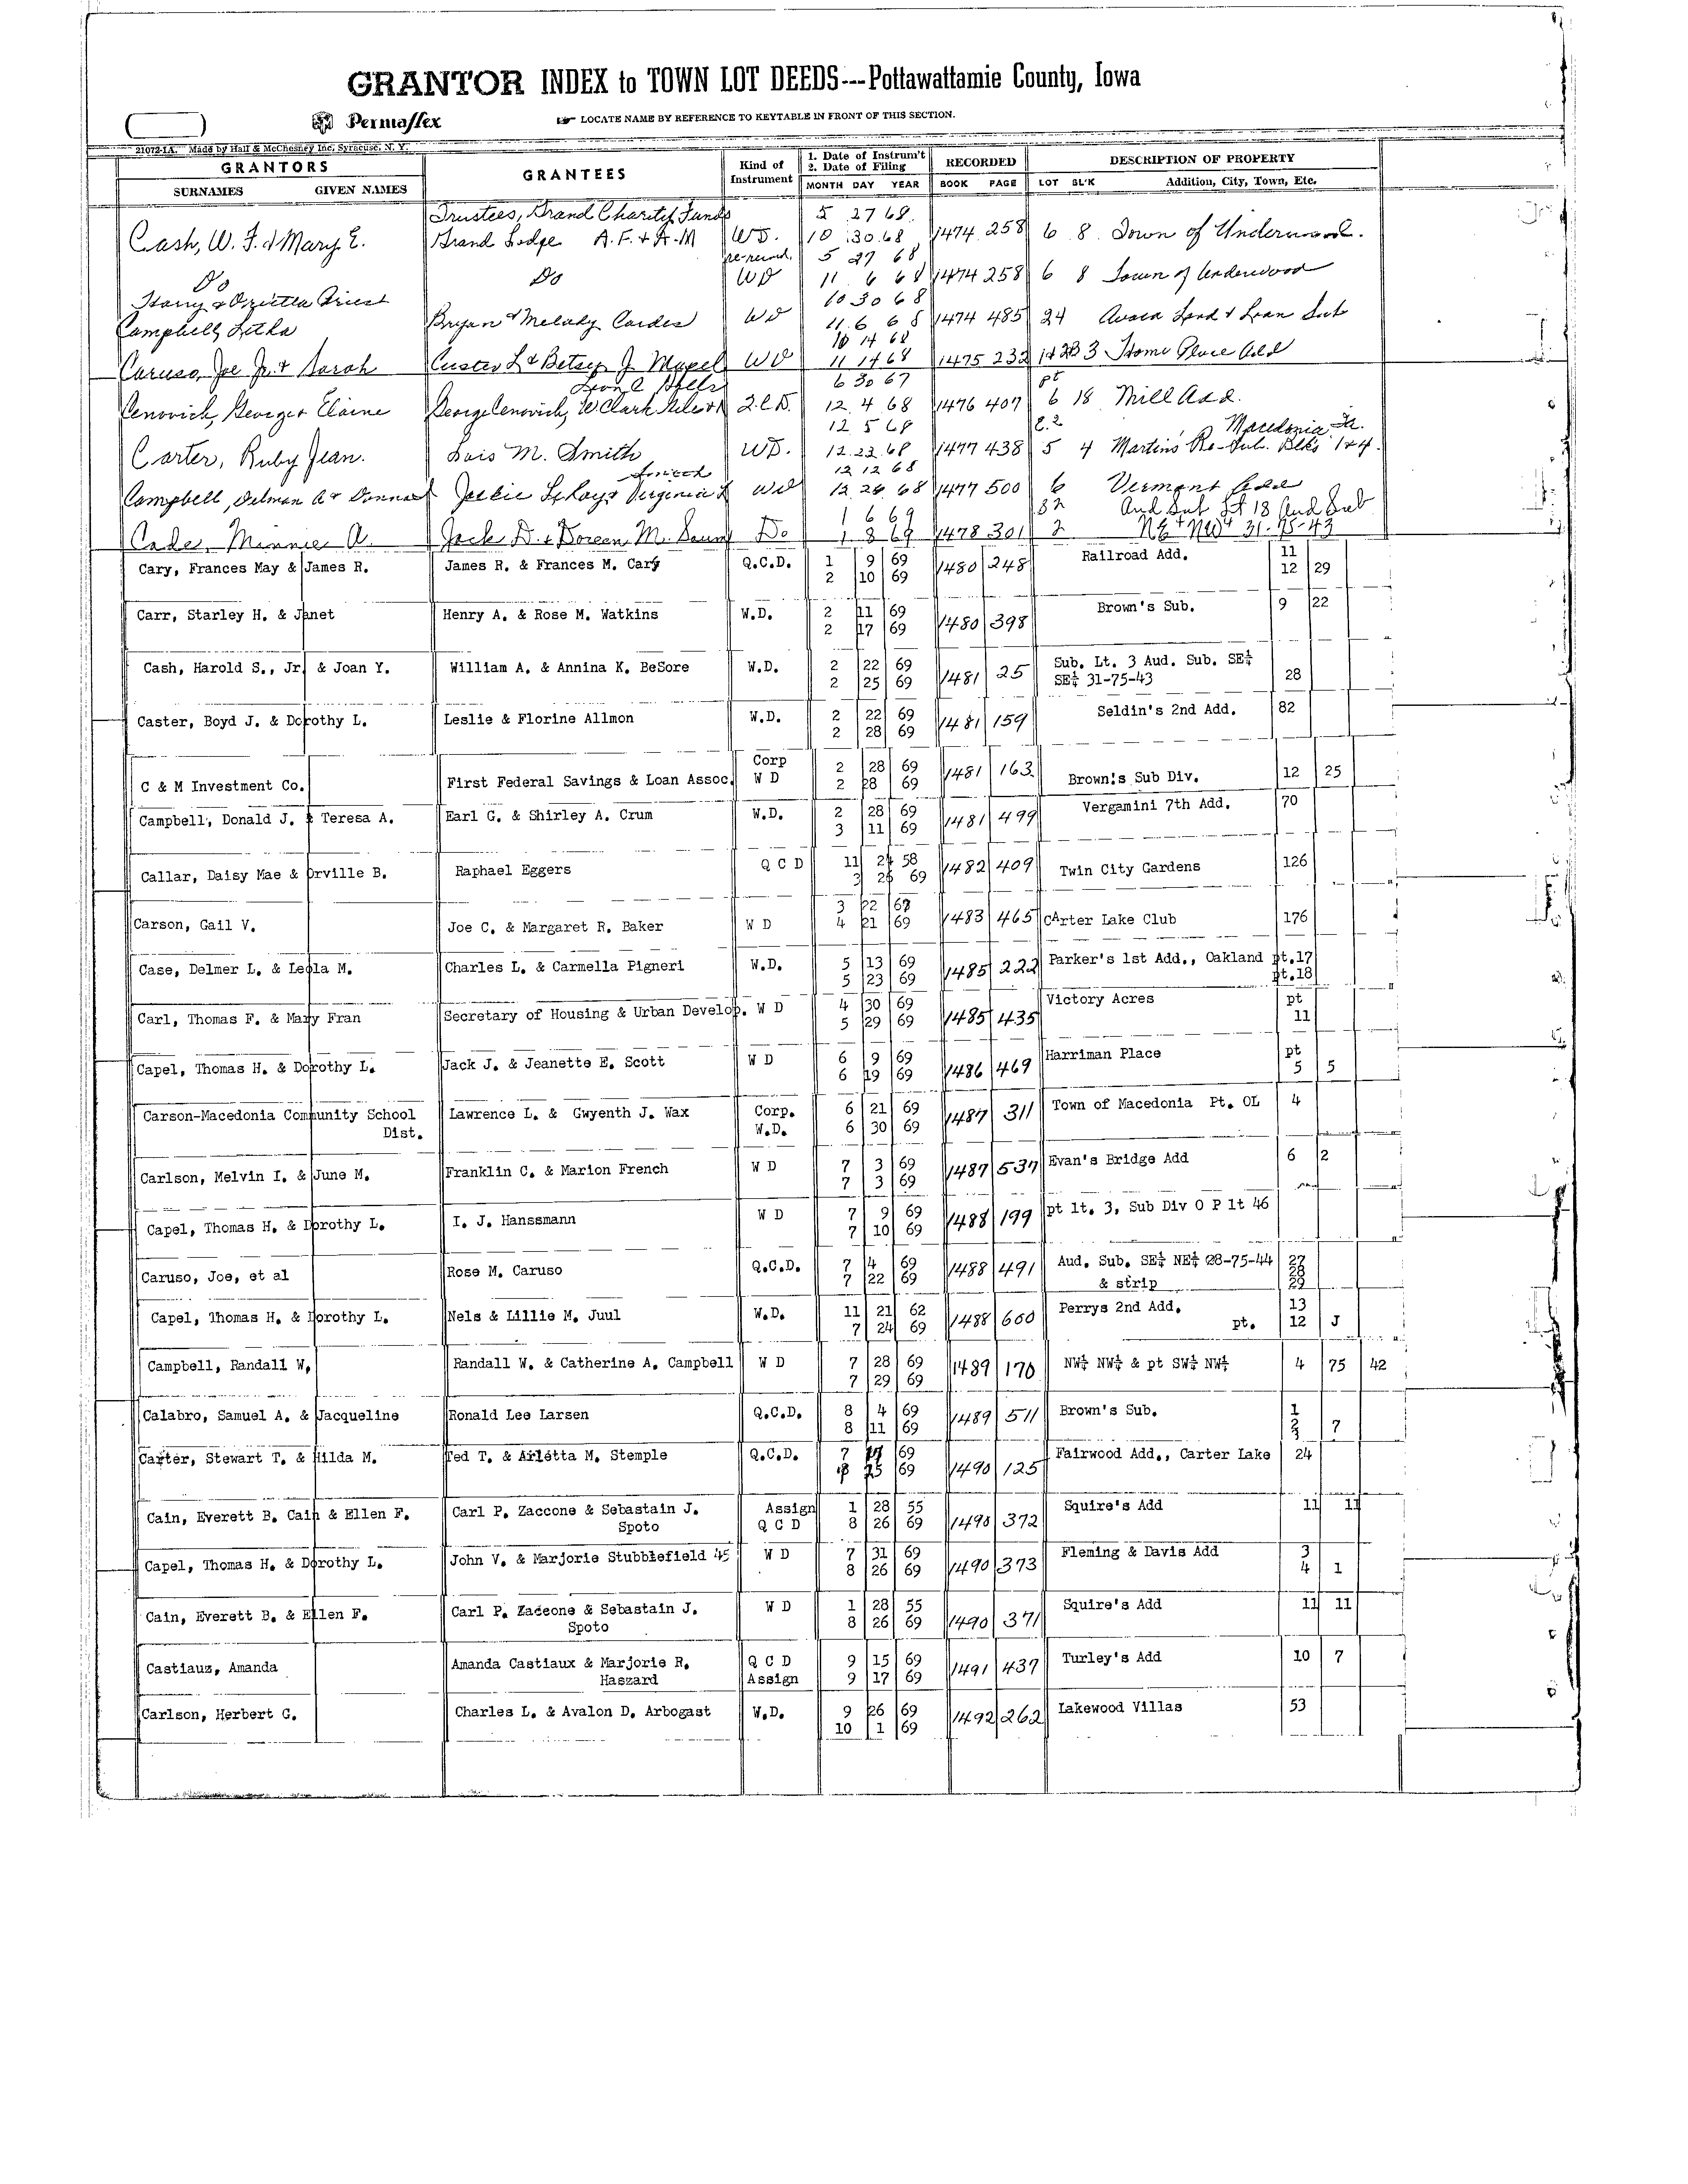 GRANTOR INDEX to TOWN LOT DEEDS---Pottawattamie County, Iowa
Permaflex LOCATE NAME BY REFERENCE TO KEYTABLE IN FRONT OF THIS SECTION.
21072-1A. Made by Hall & McChesney Inc. Syracuse, N. Y.
GRANTORS GRANTEES Kind of Instrument 1. Date of Instrum't 2. Date of Filing RECORDED DESCRIPTION OF PROPERTY
SURNAMES GIVEN NAMES MONTH DAY YEAR BOOK PAGE LOT BL'K Addition, City, Town, Etc.
Trustees, Grand Charity Funds 5 27 68
Cash, W. F. & Mary E. Grand Lodge A.F. & A.M WD. 10 30 68 1474 258 6 8 Town of Underwood.
5 27 68
Do Do WD 11 6 68 1474 258 6 8 Town of Underwood
10 30 68
Campbell, Letha Bryan & Melady Cardes WD 11 6 68 1474 485 24 Avoca Land & Loan Sub
10 14 68
Caruso, Joe Jr. & Sarah Custer L & Betsey J. WD 11 14 68 1475 232 3 Home Place Add
6 30 67 pt
Cenovich, George & Elaine George Cenovich, W Clark Q.C.D. 12 4 68 1476 407 6 18 Mill Add.
12 5 68 Macedonia Ia.
Carter, Ruby Jean. Lois M. Smith WD. 12 23 68 1477 438 5 4 Martin's Re-Sub. Blks 1&4.
12 12 68
Campbell, Delman A & Donna Jackie LeRoy & Virginia WD 12 26 68 1477 500 6 Vermont Add
1 6 69 Aud Sub Lt 18 Aud Sub
Cade, Minnie A. Jack D. & Doreen M. Do 1 8 69 1478 301 2 NE4 NW4 31-75-43
Cary, Frances May & James R. James R. & Frances M. Cary Q.C.D. 1 9 69 1480 248 Railroad Add. 11
2 10 69 12 29
Carr, Starley H. & Janet Henry A. & Rose M. Watkins W.D. 2 11 69 1480 398 Brown's Sub. 9 22
2 17 69
Cash, Harold S., Jr. & Joan Y. William A. & Annina K. BeSore W.D. 2 22 69 1481 25 Sub. Lt. 3 Aud. Sub. SE¼
2 25 69 SE¼ 31-75-43 28
Caster, Boyd J. & Dorothy L. Leslie & Florine Allmon W.D. 2 22 69 1481 159 Seldin's 2nd Add. 82
2 28 69
Corp
C & M Investment Co. First Federal Savings & Loan Assoc. W D 2 28 69 1481 163 Brown's Sub Div. 12 25
2 28 69
Campbell, Donald J. & Teresa A. Earl G. & Shirley A. Crum W.D. 2 28 69 1481 499 Vergamini 7th Add. 70
3 11 69
Callar, Daisy Mae & Orville B. Raphael Eggers Q C D 11 24 58 1482 409 Twin City Gardens 126
3 26 69
3 22 69
Carson, Gail V. Joe C. & Margaret R. Baker W D 4 21 69 1483 465 CArter Lake Club 176
Case, Delmer L. & Leola M. Charles L. & Carmella Pigneri W.D. 5 13 69 1485 222 Parker's 1st Add., Oakland pt.17
5 23 69 pt.18
Carl, Thomas F. & Mary Fran Secretary of Housing & Urban Develop. W D 4 30 69 1485 435 Victory Acres pt
5 29 69 11
Capel, Thomas H. & Dorothy L. Jack J. & Jeanette E. Scott W D 6 9 69 1486 469 Harriman Place pt
6 19 69 5 5
Carson-Macedonia Community School Lawrence L. & Gwyenth J. Wax Corp. 6 21 69 1487 311 Town of Macedonia Pt. OL 4
Dist. W.D. 6 30 69
Carlson, Melvin I. & June M. Franklin C. & Marion French W D 7 3 69 1487 537 Evan's Bridge Add 6 2
7 3 69
Capel, Thomas H. & Dorothy L. I. J. Hanssmann W D 7 9 69 1488 199 pt lt. 3, Sub Div O P lt 46
7 10 69
Caruso, Joe, et al Rose M. Caruso Q.C.D. 7 4 69 1488 491 Aud. Sub. SE¼ NE¼ 28-75-44 27
7 22 69 & strip 28
29
Capel, Thomas H. & Dorothy L. Nels & Lillie M. Juul W.D. 11 21 62 1488 600 Perrys 2nd Add. 13
7 24 69 pt. 12 J
Campbell, Randall W. Randall W. & Catherine A. Campbell W D 7 28 69 1489 170 NW¼ NW¼ & pt SW¼ NW¼ 4 75 42
7 29 69
Calabro, Samuel A. & Jacqueline Ronald Lee Larsen Q.C.D. 8 4 69 1489 511 Brown's Sub. 1
8 11 69 2
3 7
Carter, Stewart T. & Hilda M. Ted T. & Arletta M. Stemple Q.C.D. 7 69 1490 125 Fairwood Add., Carter Lake 24
8 69
Cain, Everett B. Cain & Ellen F. Carl P. Zaccone & Sebastain J. Assign 1 28 55 1490 372 Squire's Add 11 11
Spoto Q C D 8 26 69
Capel, Thomas H. & Dorothy L. John V. & Marjorie Stubblefield 45 W D 7 31 69 1490 373 Fleming & Davis Add 3
8 26 69 4 1
Cain, Everett B. & Ellen F. Carl P. Zaccone & Sebastain J. W D 1 28 55 1490 371 Squire's Add 11 11
Spoto 8 26 69
Castiauz, Amanda Amanda Castiaux & Marjorie R. Q C D 9 15 69 1491 437 Turley's Add 10 7
Haszard Assign 9 17 69
Carlson, Herbert G. Charles L. & Avalon D. Arbogast W.D. 9 26 69 1492 262 Lakewood Villas 53
10 1 69